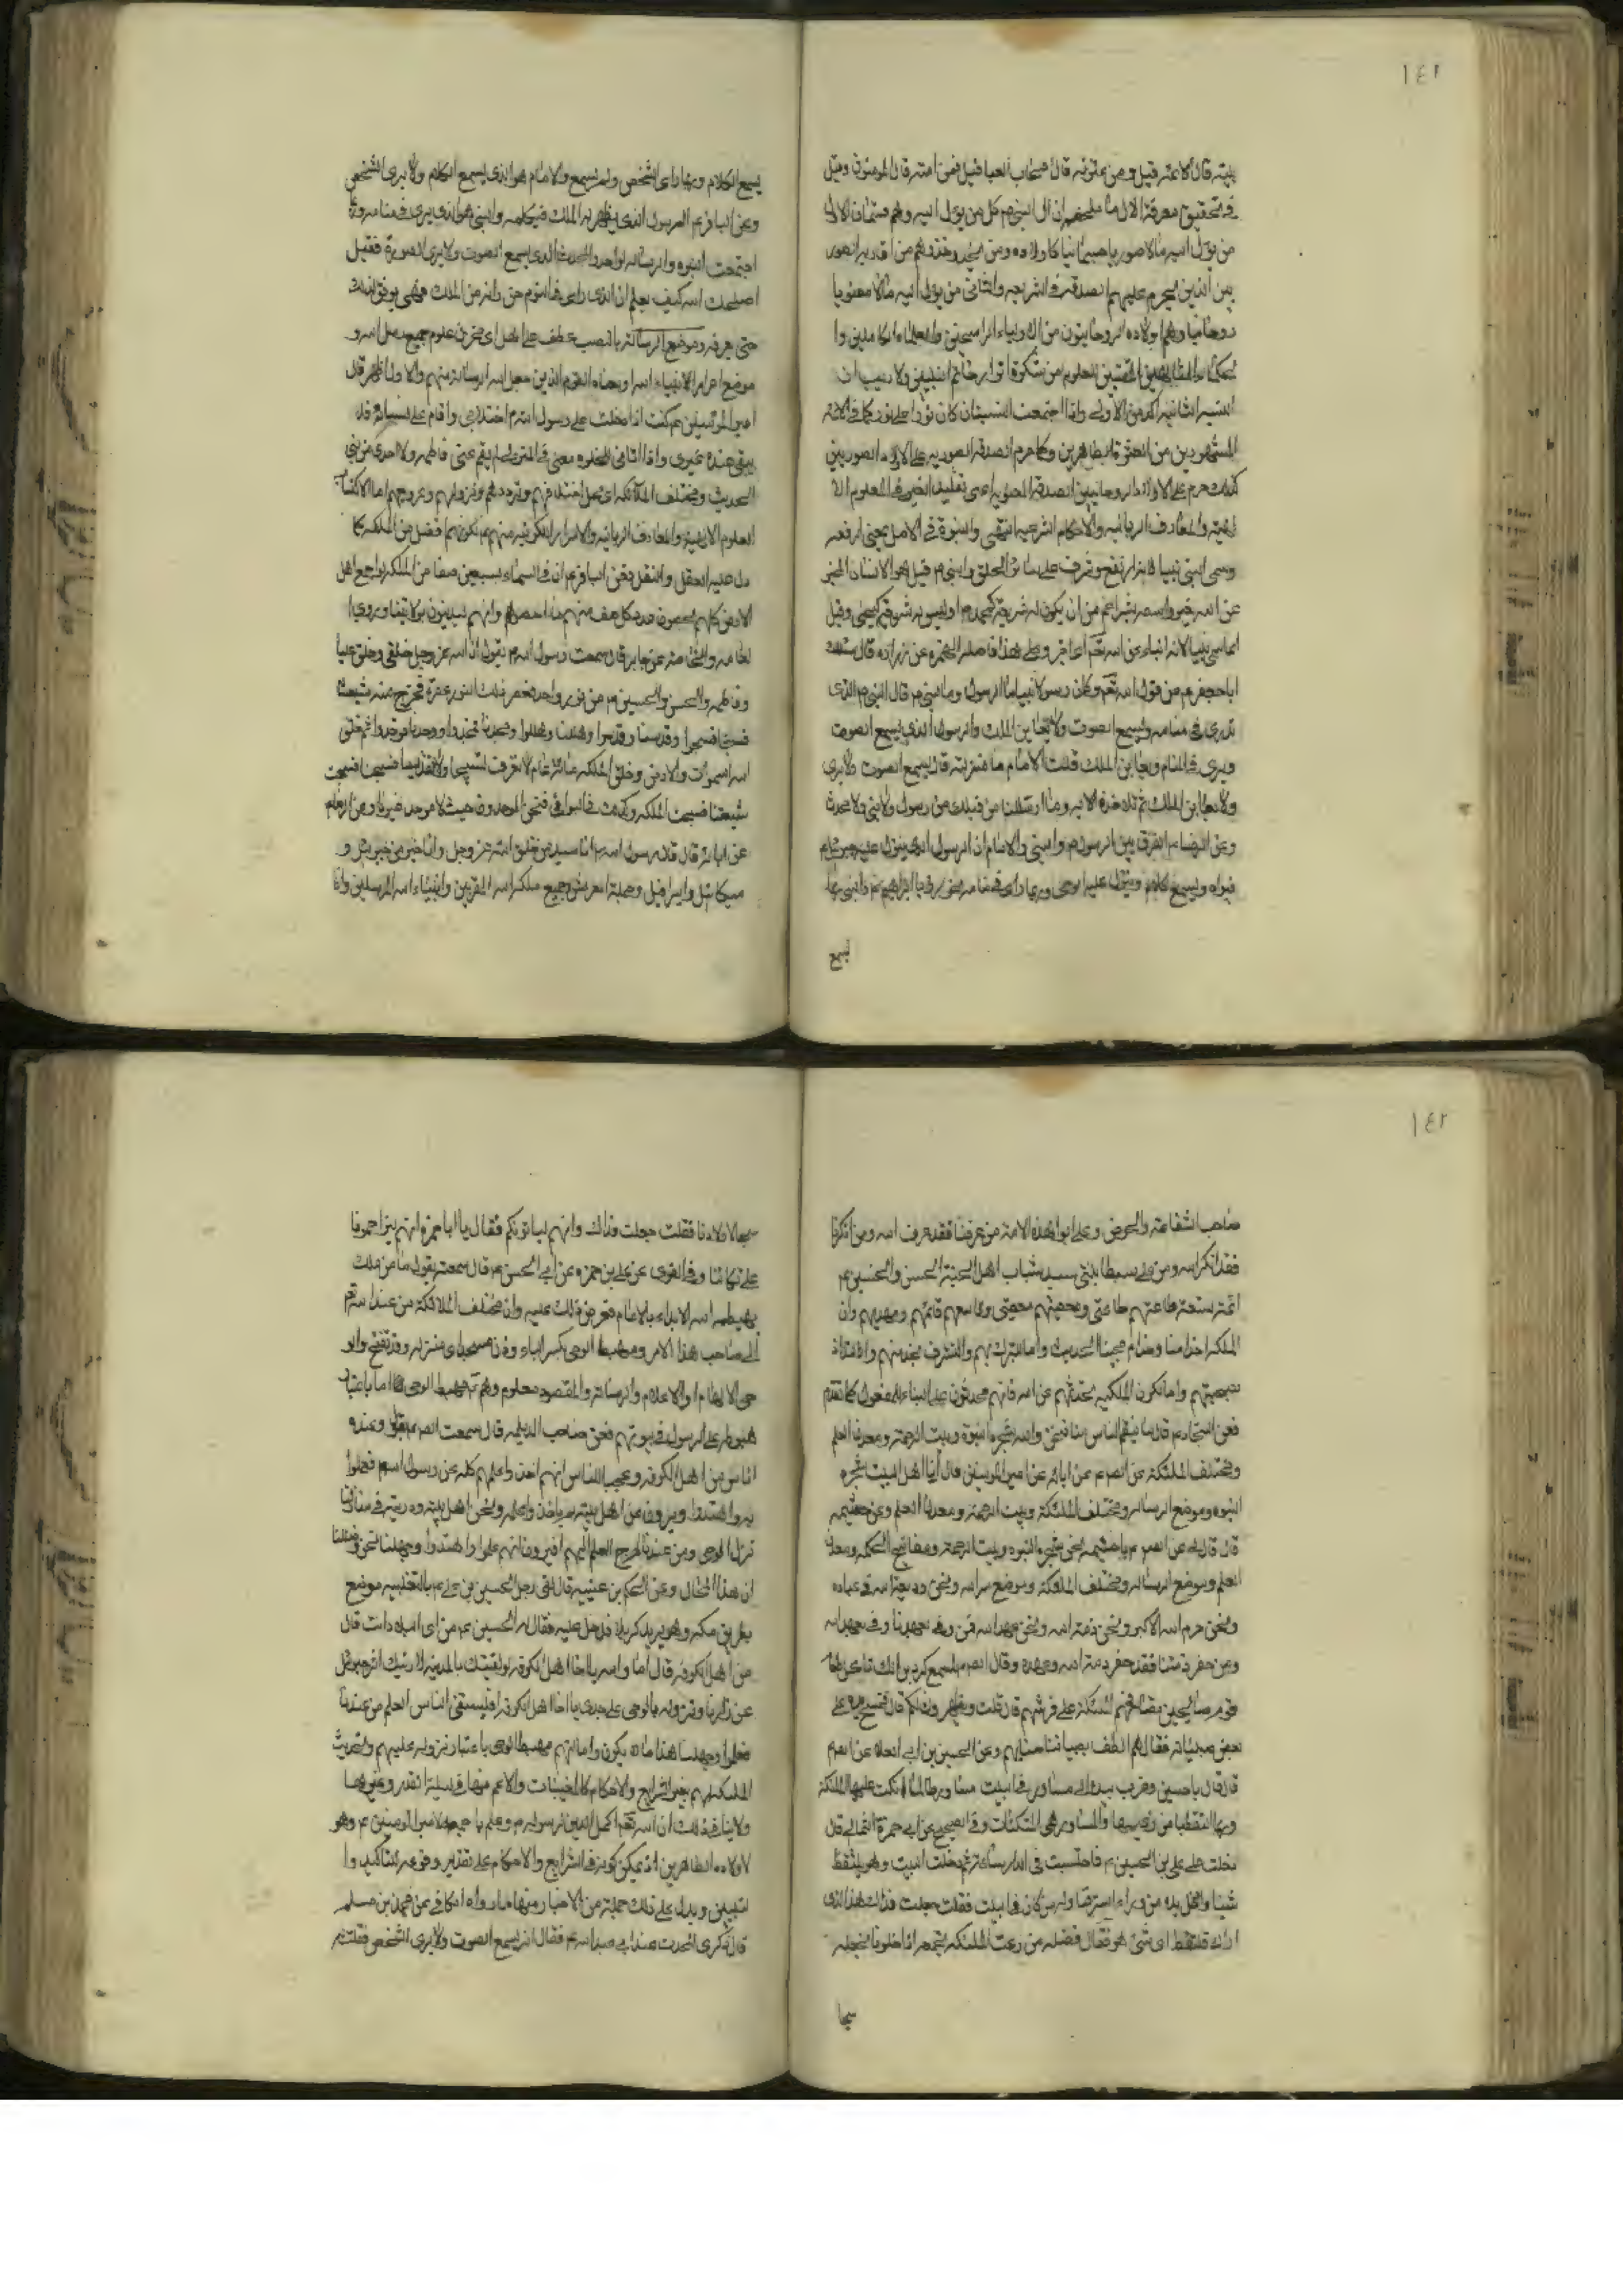 ١٤١
بيته قال الائمة قيل ومن عترته قال اصحاب العبا قيل فمن امته قال المؤمنون وقيل
في تحقيق معرفة الال ما ملخصه ان ال النبي ص كل من يؤل اليه وهم قسمان الاول
من يؤل اليه مالا صوريا جسمانيا كاولاده ومن يحذو حذوهم من اقاربه الصور
يين الذين يحرم عليهم الصدقة في الشريعة والثاني من يؤل اليه مالا معنويا
روحانيا وهم اولاده الروحانيون من الاولياء الراسخين والعلماء الكاملين وا
لحكماء المتالهين المقتبسين للعلوم من مشكوة انوار خاتم النبيين ولا ريب ان
النسبة الثانية اكد من الاولى واذا اجتمعت النسبتان كان نورا على نور كما في الائمة
المشهورين من العترة الطاهرين وكما حرم الصدقة الصورية على الاولاد الصوريين
كذلك حرم على الاولاد الروحانيين الصدقة المعنوية اعني تقليد الغير في العلوم الا
لهية والمعارف الربانية والاحكام الشرعية انتهى والنبوة في الاصل بمعنى الرفعة
وسمي النبي نبيا لانه ارتفع وشرف على سائر الخلق والنبي ص قيل هو الانسان المخبر
عن الله بغير واسطة بشر اعم من ان يكون له شريعة كمحمد ص او ليس له شريعة كيحيى وقيل
انما سمي نبيا لانه انباء عن الله تعم اي اخبر وعلى هذا فاصله الهمزة عن زرارة قال سئلت
ابا جعفر ع من قول الله تعم وكان رسولا نبيا ما الرسول وما النبي ص قال النبي ص الذي
يرى في منامه ويسمع الصوت ولا يعاين الملك والرسول الذي يسمع الصوت
ويرى في المنام ويعاين الملك قلت الامام ما منزلته قال يسمع الصوت ولا يرى
ولا يعاين الملك ثم تلا هذه الاية وما ارسلنا من قبلك من رسول ولا نبي ولا محدث
وعن الرضا ع الفرق بين الرسول ص والنبي والامام ان الرسول الذي ينزل عليه جبرئيل
فيراه ويسمع كلامه وينزل عليه الوحي وربما راى في منامه نحو رؤيا ابراهيم ع والنبي ربما
يسمع
يسمع الكلام وربما راى الشخص ولم يسمع والامام هو الذي يسمع الكلام ولا يرى الشخص
وعن الباقر ع الرسول الذي يظهر له الملك فيكلمه والنبي هو الذي يرى في منامه وربما
اجتمعت النبوة والرسالة لواحد والمحدث الذي يسمع الصوت ولا يرى الصورة فقيل
اصلحك الله كيف يعلم ان الذي راى في النوم حق وانه من الملك قال يوفق لذلك
حتى يعرفه وموضع الرسالة بالنصب عطف على اهل اي مخزن علوم جميع رسل الله و
موضع اسرار الانبياء الله او معناه القوم الذين جعل الله الرسالة منهم والاول اظهر قال
امير المؤمنين ع كنت اذا دخلت على رسول الله ص اختلاني واقام على نسائه فلا
يبقى عنده غيري واذا اتاني للخلوة معي في المنزل لم يقم عني فاطمة ولا احد من بني
الحديث ومختلف الملائكة اي محل اختلافهم وترددهم ونزولهم وعروجهم اما لاكتساب
العلوم الالهية والمعارف الربانية والاسرار الملكوتية منهم ع لكونهم افضل من الملئكة كما
دل عليه العقل والنقل وعن الباقر ع ان في السماء سبعين صفا من الملئكة لو اجتمع اهل
الارض كلهم يحصون عدد كل صف منهم ما احصوهم وانهم ليدينون بولايتنا وروى ا
لعامة والخاصة عن جابر قال سمعت رسول الله ص يقول ان الله عز وجل خلقني وخلق عليا
وفاطمة والحسن والحسين ع من نور واحد فعصر ذلك النور عصرة فخرج منه شيعتنا
فسبحنا فسبحوا وقدسنا وقدسوا وهللنا وهللوا ومجدنا فمجدوا ووحدنا فوحدوا ثم خلق
الله السموات والارض وخلق الملئكة مائة عام لا تعرف تسبيحا ولا تقديسا فسبحنا فسبحت
شيعتنا فسبحت الملئكة وكذلك في البواقي فنحن الموحدون حيث لا موحد غيرنا وعن الرضا ع
عن ابائه قال قال رسول الله ص انا سيد من خلق الله عز وجل وانا خير من جبرئيل و
ميكائيل واسرافيل وحملة العرش وجميع ملئكة الله المقربين وانبياء الله المرسلين وانا
١٤٢
صاحب الشفاعة والحوض وعلي ابوا هذه الامة من عرفنا فقد عرف الله ومن انكرنا
فقد انكر الله ومن علي سبطا بنتي سيدا شباب اهل الجنة الحسن والحسين ع
ائمة تسعة طاعتهم طاعتي ومعصيتهم معصيتي تاسعهم قائمهم ومهديهم وان
الملئكة لخدامنا وخدام محبينا الحديث واما للتبرك بهم والتشرف بخدمتهم والالتذاذ
بصحبتهم واما لكون الملئكة يحدثهم عن الله فانهم محدثون على البناء للمفعول كما تقدم
فعن السجاد ع قال ما ينقم الناس منا فنحن والله شجرة النبوة وبيت الرحمة ومعدن العلم
ومختلف الملئكة عن الصم عن ابائه عن امير المؤمنين قال انا اهل البيت شجرة
النبوة وموضع الرسالة ومختلف الملئكة وبيت الرحمة ومعدن العلم وعن خيثمة
قال قال لي عن الصم يا خيثمة نحن شجرة النبوة وبيت الرحمة ومفاتيح الحكمة ومعدن
العلم وموضع الرسالة ومختلف الملئكة وموضع سر الله ونحن وديعة الله في عباده
ونحن حرم الله الاكبر ونحن ذمة الله ونحن عهد الله فمن وفى بعهدنا وفى بعهد الله
ومن خفر ذمتنا فقد خفر ذمة الله وعهده وقال الصم لمسمع كردين انك تاكل طعام
قوم صالحين تصافحهم الملئكة على فرشهم قال قلت ويظهرون لكم قال فمسح يده على
بعض صبيانه فقال هم الطف بصبياننا منا بهم وعن الحسين بن ابي العلاء عن الصم
قال قال يا حسين وضرب بيده الى مساور في البيت مساور طالما اتكت عليها الملئكة
وربما التقطنا من زغبها والمساور هي المتكئات وفي الصحيح عن ابي حمزة الثمالي قال
دخلت على علي بن الحسين ع فاحتبست في الدار ساعة ثم دخلت البيت وهو يلتقط
شيئا وادخل يده من وراء الستر فناوله من كان في البيت فقلت جعلت فداك هذا الذي
اراك تلتقط اي شيء هو فقال فضلة من زغب الملئكة نجمعه اذا خلونا نجعله
سبحا
سبحا لاولادنا فقلت جعلت فداك وانهم لياتونكم فقال يا ابا حمزة انهم ليزاحمونا
على تكائنا وفي القوي عن علي بن حمزة عن ابي الحسن ع قال سمعته يقول ما من ملك
يهبطه الله الا بداء بالامام فعرض ذلك عليه وان مختلف الملائكة من عند الله تعم
الى صاحب هذا الامر ومهبط الوحي بكسر الباء وزان مسجد اي منزله وقد تفتح والو
حي الالهام او الاعلام والرسالة والمقصود معلوم وهم ع مهبط الوحي اما باعتبار
هبوطه على الرسول في بيوتهم فعن صاحب الديلم قال سمعت الصم يقول وعنده
اناس من اهل الكوفة وعجبا للناس انهم اخذوا علمهم كله عن رسول الله ص فعملوا
به واهتدوا ويرون ان اهل بيته لم ياخذوا علمه ونحن اهل بيته وذريته في منازلنا
نزل الوحي ومن عندنا خرج العلم اليهم افيرون انهم علموا واهتدوا وجهلنا نحن وضللنا
ان هذا لمحال وعن الحكم بن عتيبة قال لقى رجل الحسين بن علي ع بالثعلبية موضع
بطريق مكة وهو يريد كربلا فدخل عليه فقال له الحسين ع من اي البلاد انت قال
من اهل الكوفة قال اما والله يا اخا اهل الكوفة لو لقيتك بالمدينة لاريتك اثر جبرئيل
من دارنا ونزوله بالوحي على جدي يا اخا اهل الكوفة افيستقي الناس العلم من عندنا
فعلموا وجهلنا هذا ما لا يكون واما انهم مهبط الوحي باعتبار نزوله عليهم وتحديث
الملئكة لهم بغير الشرايع والاحكام كالمغيبات والاعم منها في ليلة القدر وغيرها
ولا ينافي ذلك ان الله تعم اكمل الدين لرسوله ص وعلم ما جميعه لامير المؤمنين ع وهو
لاولاده الطاهرين اذ يمكن كونه في الشرايع والاحكام على تقدير وقوعه للتاكيد وا
لتبيين ويدل على ذلك جملة من الاخبار منها ما رواه الكافي عن محمد بن مسلم
قال ذكرى المحدث عند ابي عبد الله ع فقال انه يسمع الصوت ولا يرى الشخص فقلت له